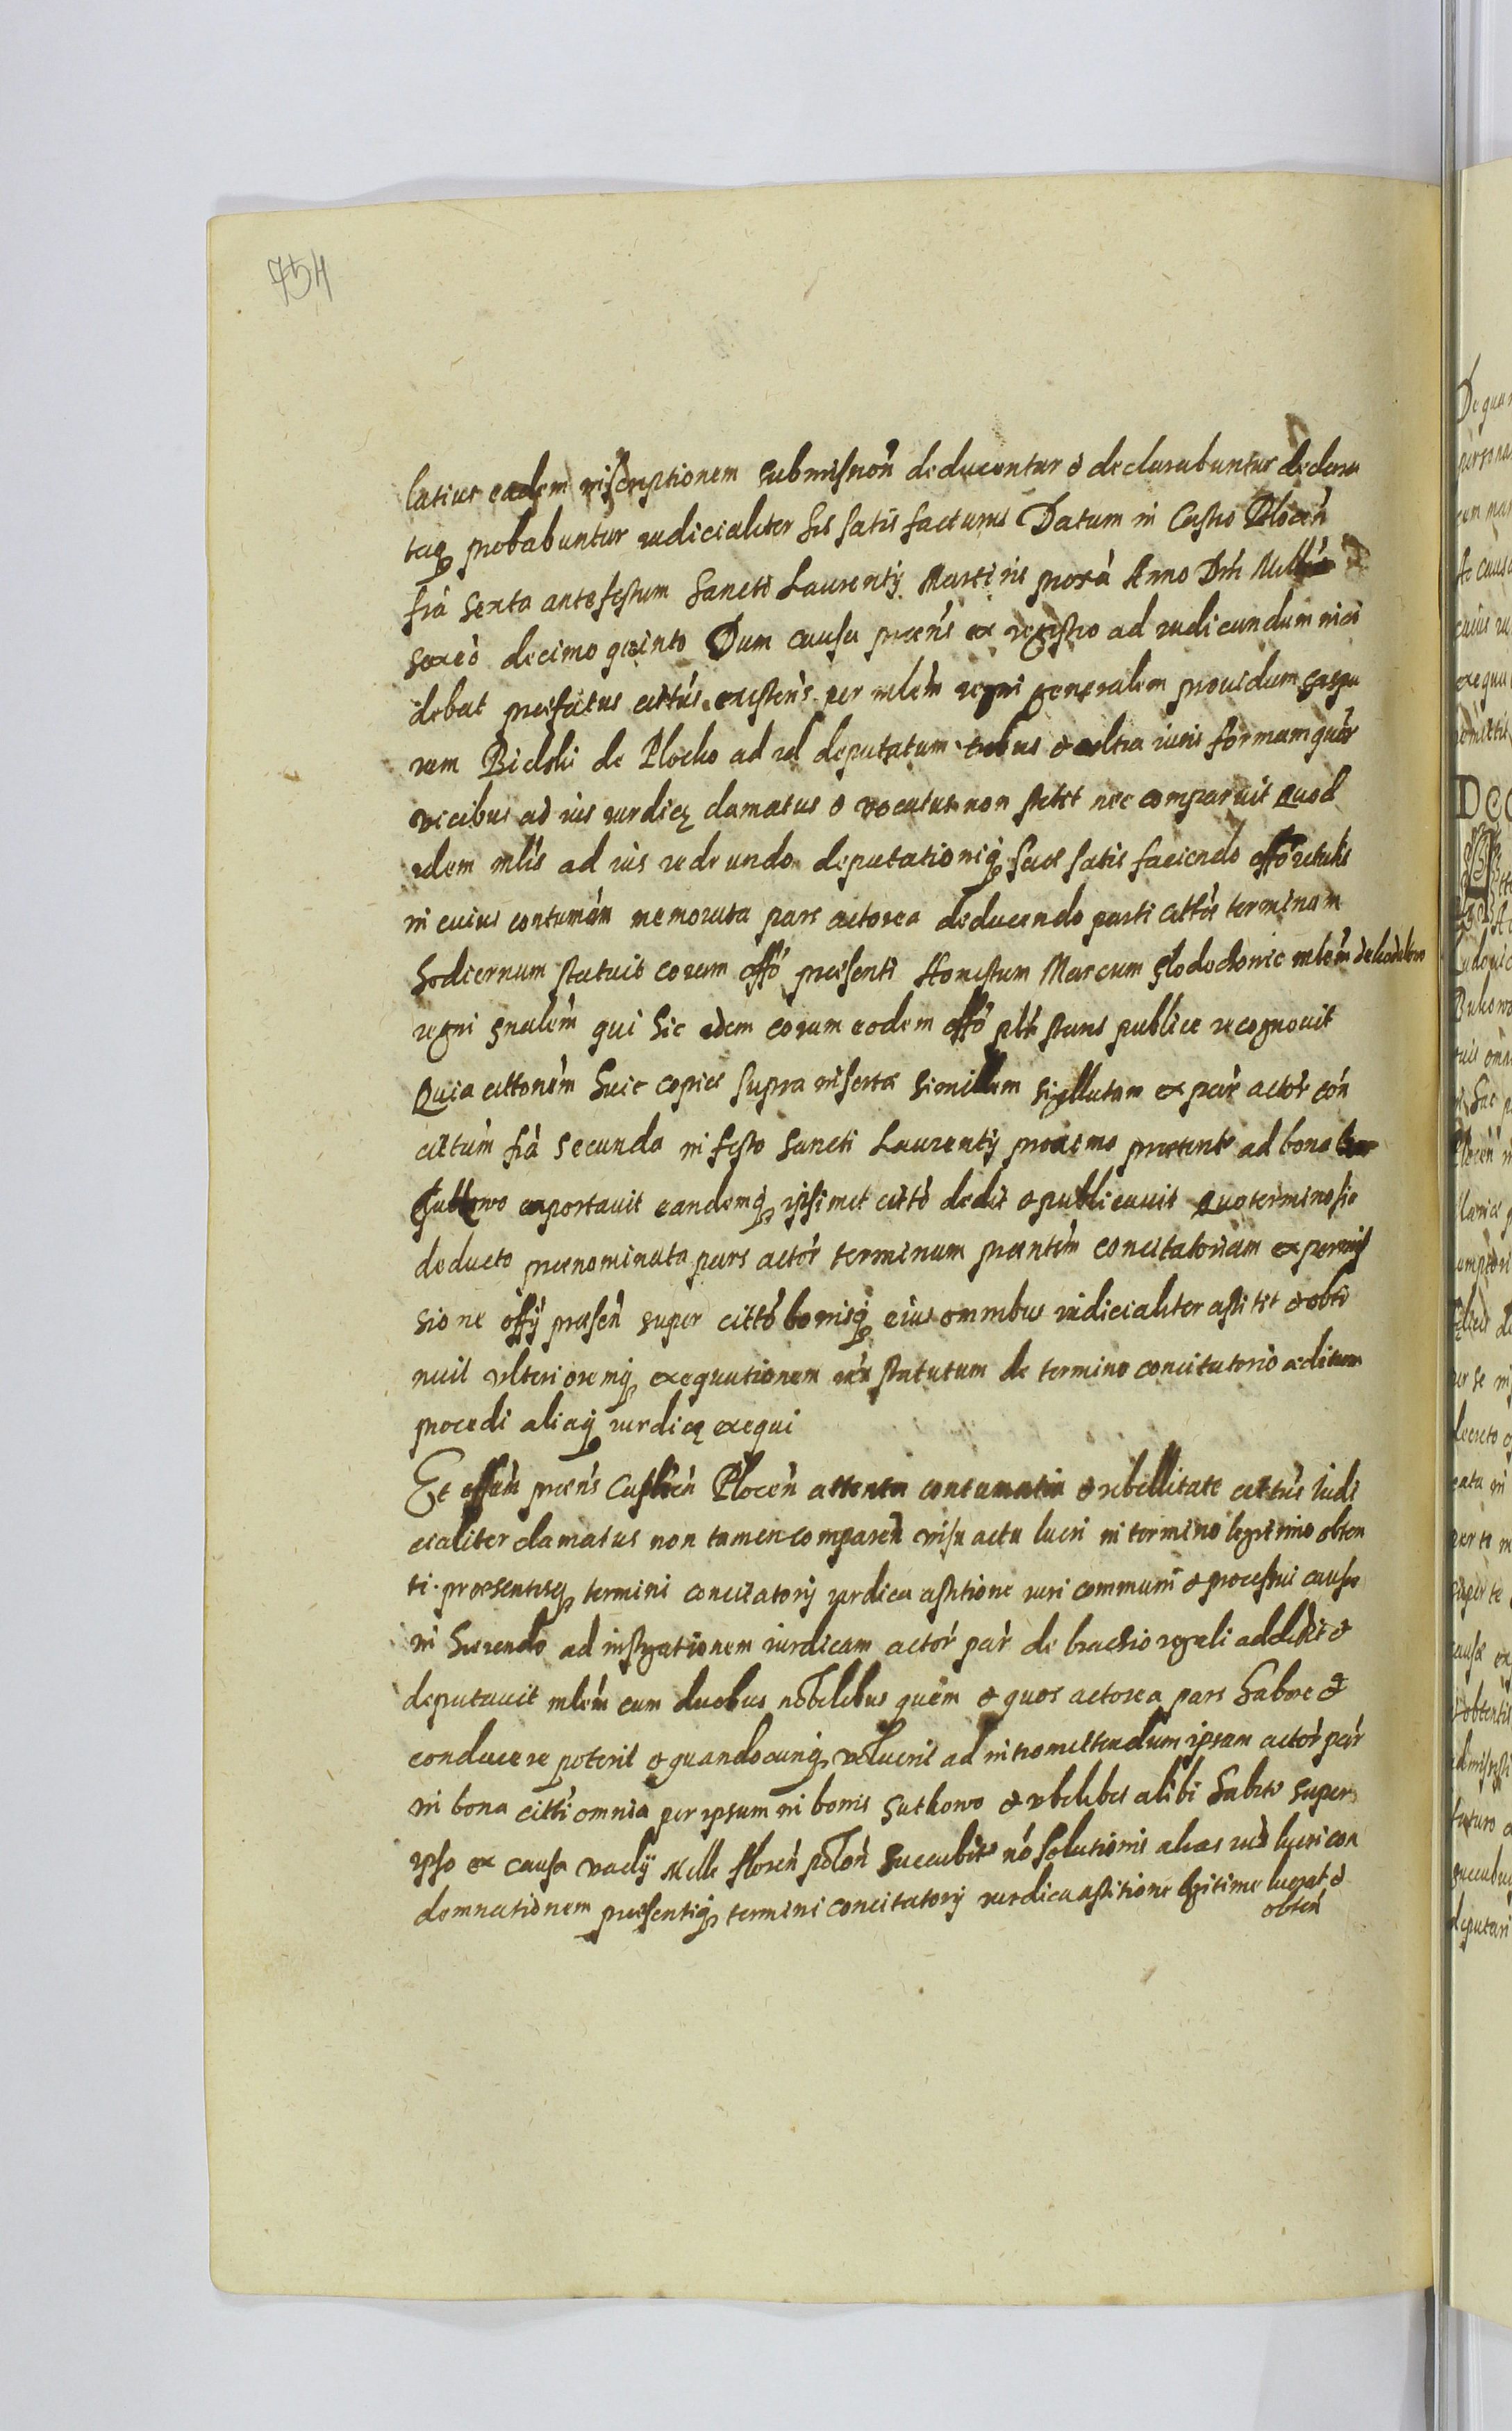 754
latius eadem inscriptionem submissioñ deducentur & declarabuntur declara
taq probabuntur iudicialiter his satis facturus Datum in Castro Plocen
fia sexta ante festum Sancti Laurentÿ Martiris proxa Anno Dni Millmo
sexcõ decimo quinto Dum causa præns ex registro ad iudicandum inci
debat præfatus cittus existens per mlem regni generalem prouidum Caspa
rum Bielski de Plocko ad id deputatum tribus & ultra iuris formam quar
vicibus ad ius iurdicq clamatus & vocatus non stetit nec comparuit Quod
idem mlis ad ius redeundo deputationiq suæ satis faciendo offo retulit
in cuius contumám memorata pars actorea deducendo parti cittæ terminum
hodiernum statuit coram offo præsenti Honestum Marcum mlem
regni gnalem qui hic idem coram eodem offo plr stans publice recognouit
Quia cittonem huic copiæ supra insertæ similem sigillatam ex par actor con
citum fia secunda in festo Sancti Laurentÿ proxime præterit ad bona
Gutkowo exportauit eandemq ipsimet citto dedit & publicauit Quo termino sic
deducto prænominata pars actor terminum præntem concitatorium ex permis
sione offÿ præsen super citto bonisq eius omnibus iudicialiter astitit & obti
nuit vlterioremq exequutionem iux statutum de termino concitatorio æditum
procedi aliaq iurdicq exequi
Et offm præns Castren Plocen attenta contumatia & rebellitate cittus iudi
cialiter clamatus non tamen comparen visa actu lucri in termino legitimo obten
ti præsentisq termini concitatorÿ iurdica astitione iuri communi & processui causæ
in hærendo ad instigationem iurdicam actor par de brachio regali addidit &
deputauit mlem cum duobus nobilibus quem & quos actorea pars habere &
conducere poterit & quandocunq voluerit ad intromittendum ipsam actor par
in bona citti omnia per ipsum in bonis Gutkowo & vbilibet alibi habita super
ipso ex causa vadÿ Mille floren polon succubit no solutionis alias iud lucri con
demnationem præsentisq termini concitatorÿ iurdica astitione legitime lucrat &
obten